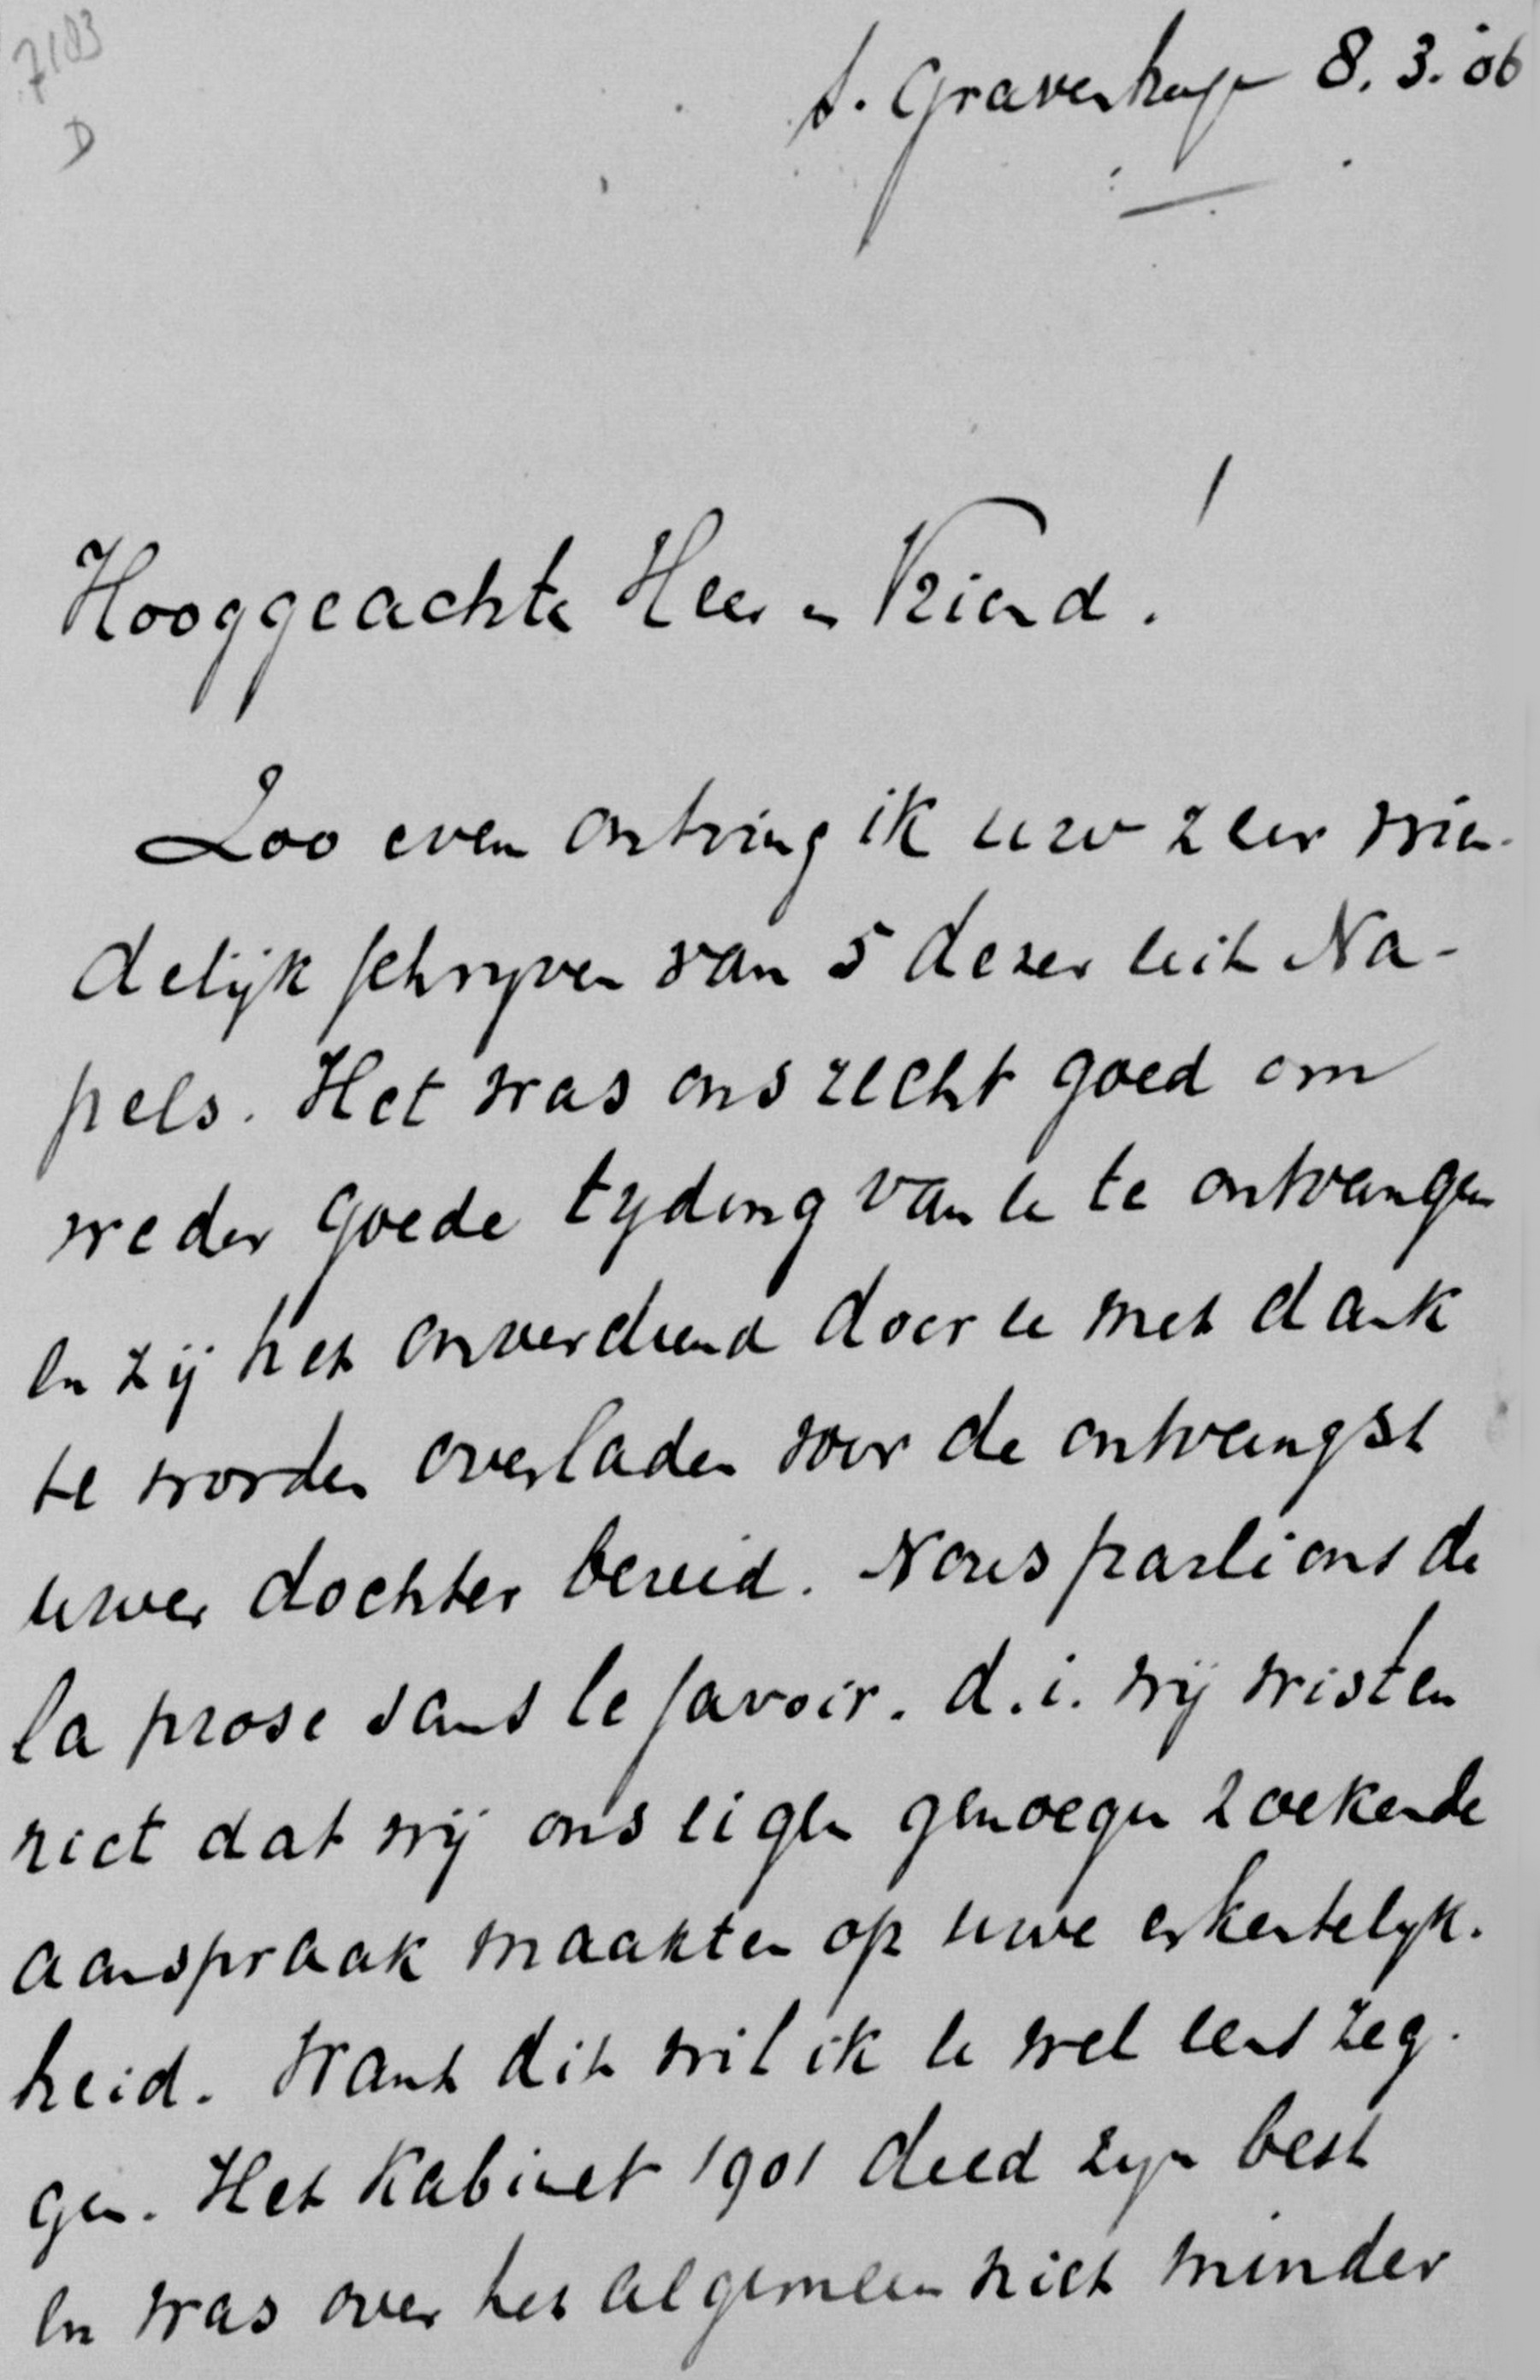 7183
D
s. Gravenhage 8.3.'06
Hooggeachte Heer en Vriend!
Zoo even ontving ik uw zeer vrien-
delijk schryven van 5 dezer uit Na-
pels. Het was ons recht goed om
weder goede tyding van u te ontvangen
en zij het onverdiend door u met dank
te worden overladen voor de ontvangst
uwer dochter bereid. Nous parlions de
la prose sans le savoir. d.i. wij wisten
niet dat wij ons eigen genoegen zoekende
aanspraak maakten op uwe erkentelyk-
heid. Want dit wil ik u wel eens zeg-
gen. Het Kabinet 1901 deed zyn best
en was over het algemeen niet minder